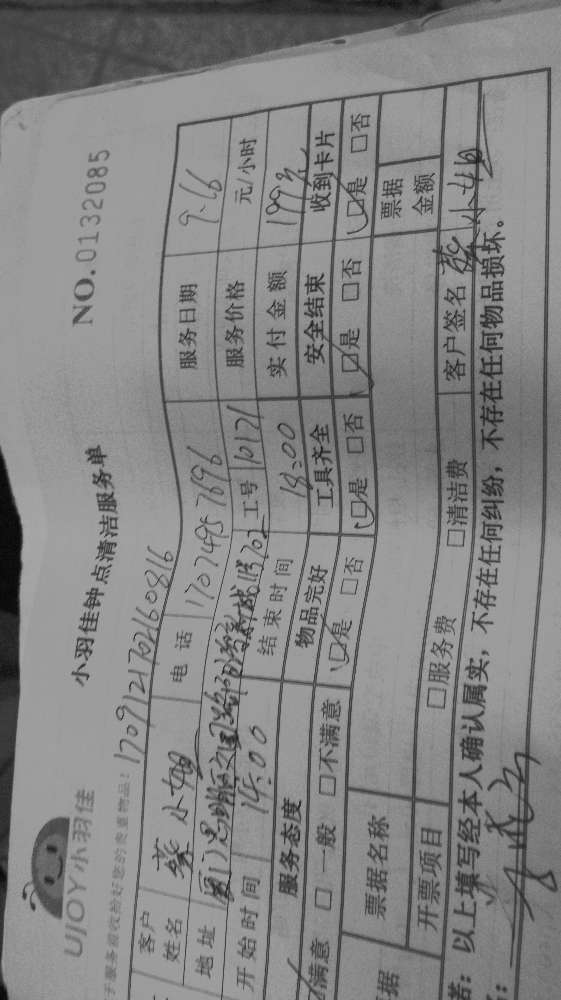 UJOY小羽佳
小羽佳钟点清洁服务单
NO.0132085
于服务前收拾好您的贵重物品: 1709121702160816
客户姓名 蔡小姐 电话 17074957896 服务日期 9.16
地址 厦门思明区 702 工号 10121 服务价格 元/小时
开始时间 14:00 结束时间 18:00 实付金额 199元
服务态度 物品完好 工具齐全 安全结束 收到卡片
满意 □一般 □不满意 □是 □否 □是 □否 □是 □否 □是 □否
票据名称 票据金额
据 开票项目 □服务费 □清洁费 客户签名 蔡小姐
诺: 以上填写经本人确认属实, 不存在任何纠纷, 不存在任何物品损坏。